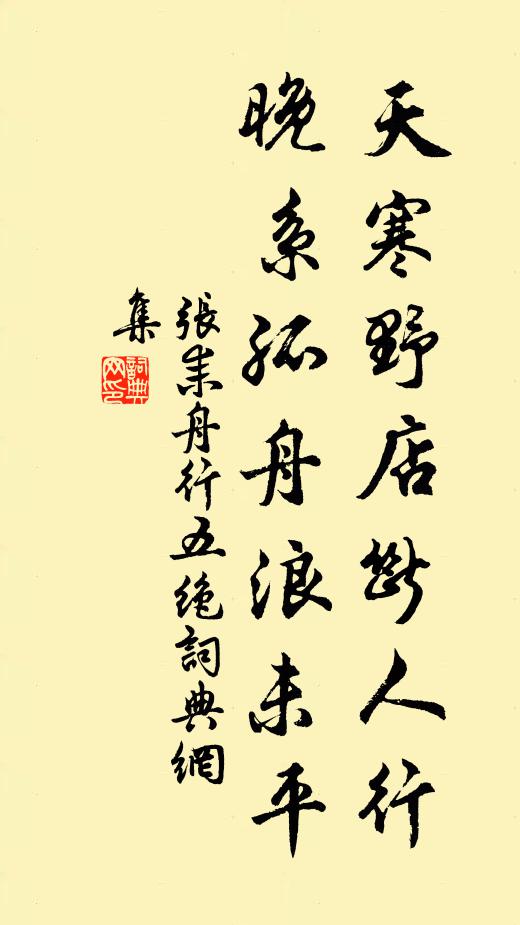 天寒野店斷人行
晚系孤舟浪未平
張耒舟行五絶詞典網
集
詞典网印